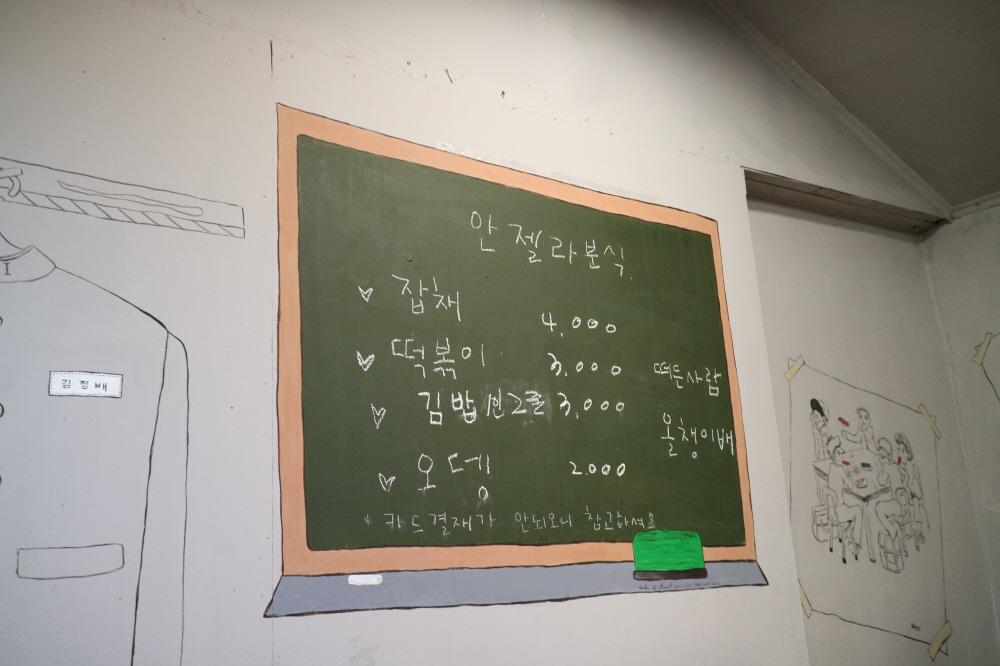 안젤라분식
잡채 4,000
떡볶이 3,000
김밥 2줄 3,000
오뎅 2.000
* 카드결재가 안되오니 참고하셔요
떠든사람
올챙이배
김정배